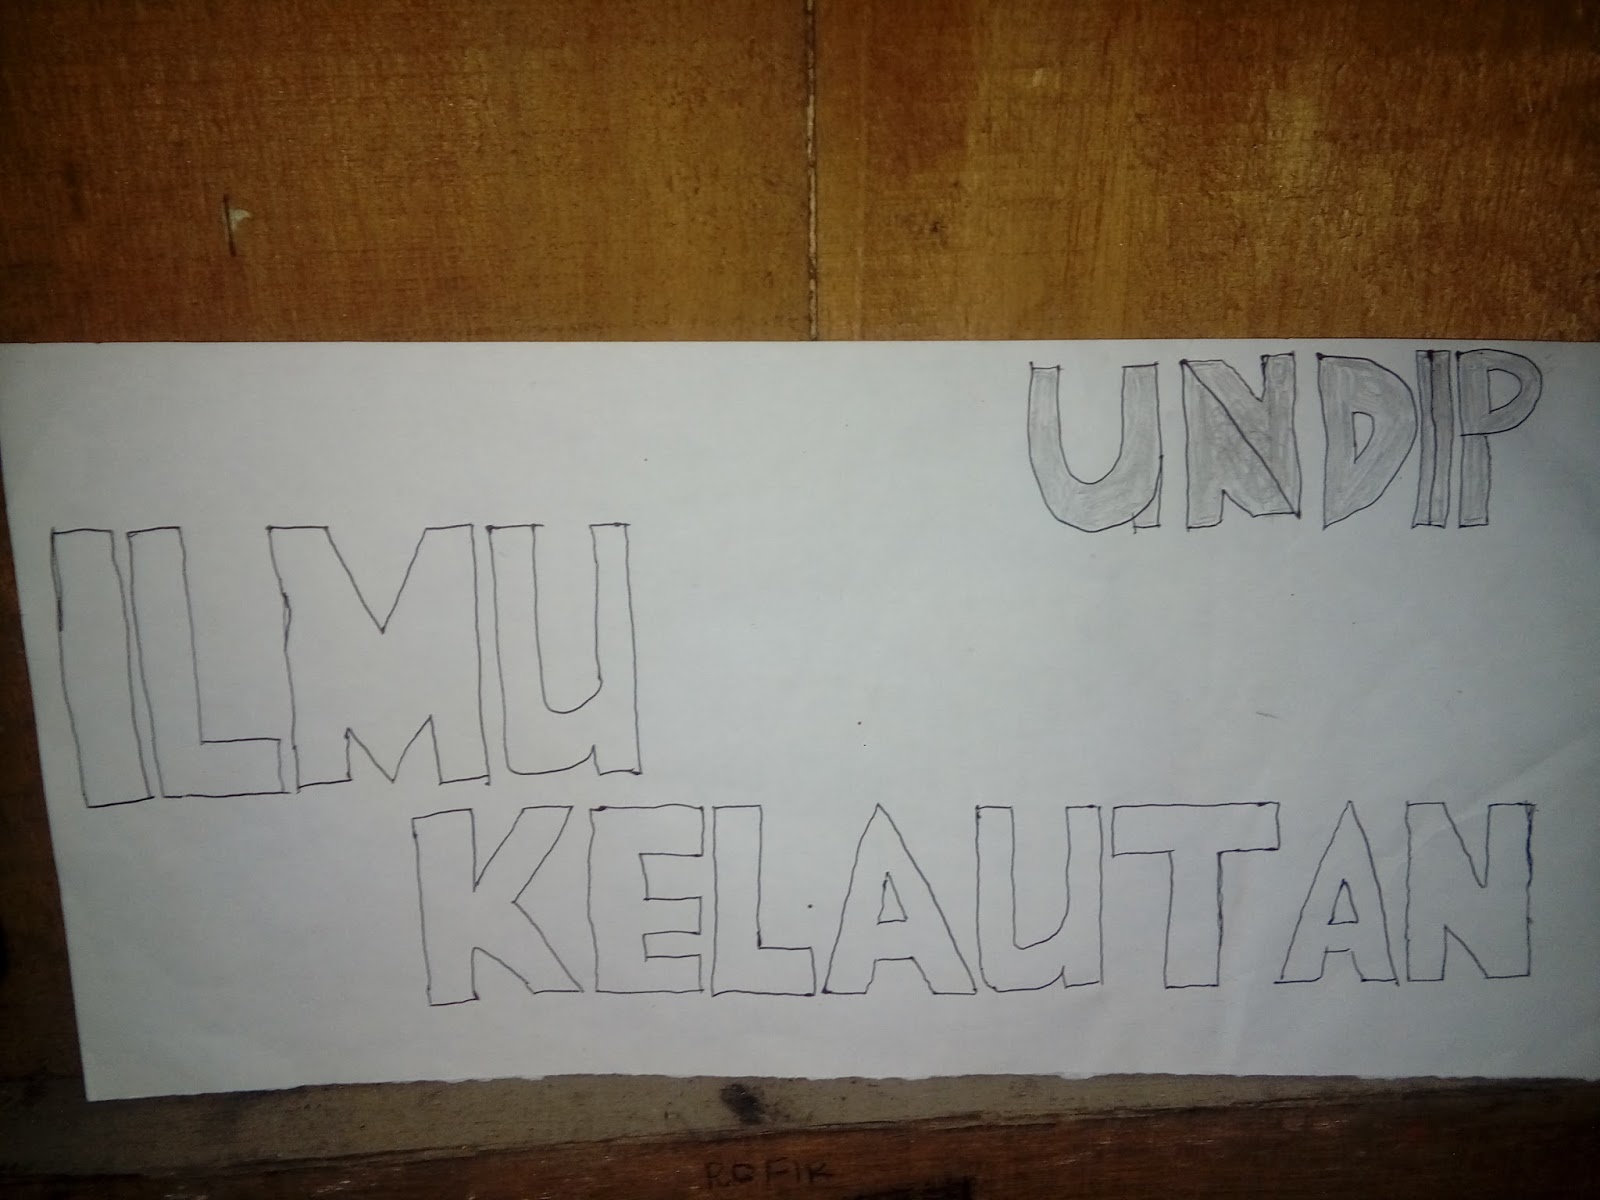 UNDIP
ILMU
KELAUTAN
ROFIK